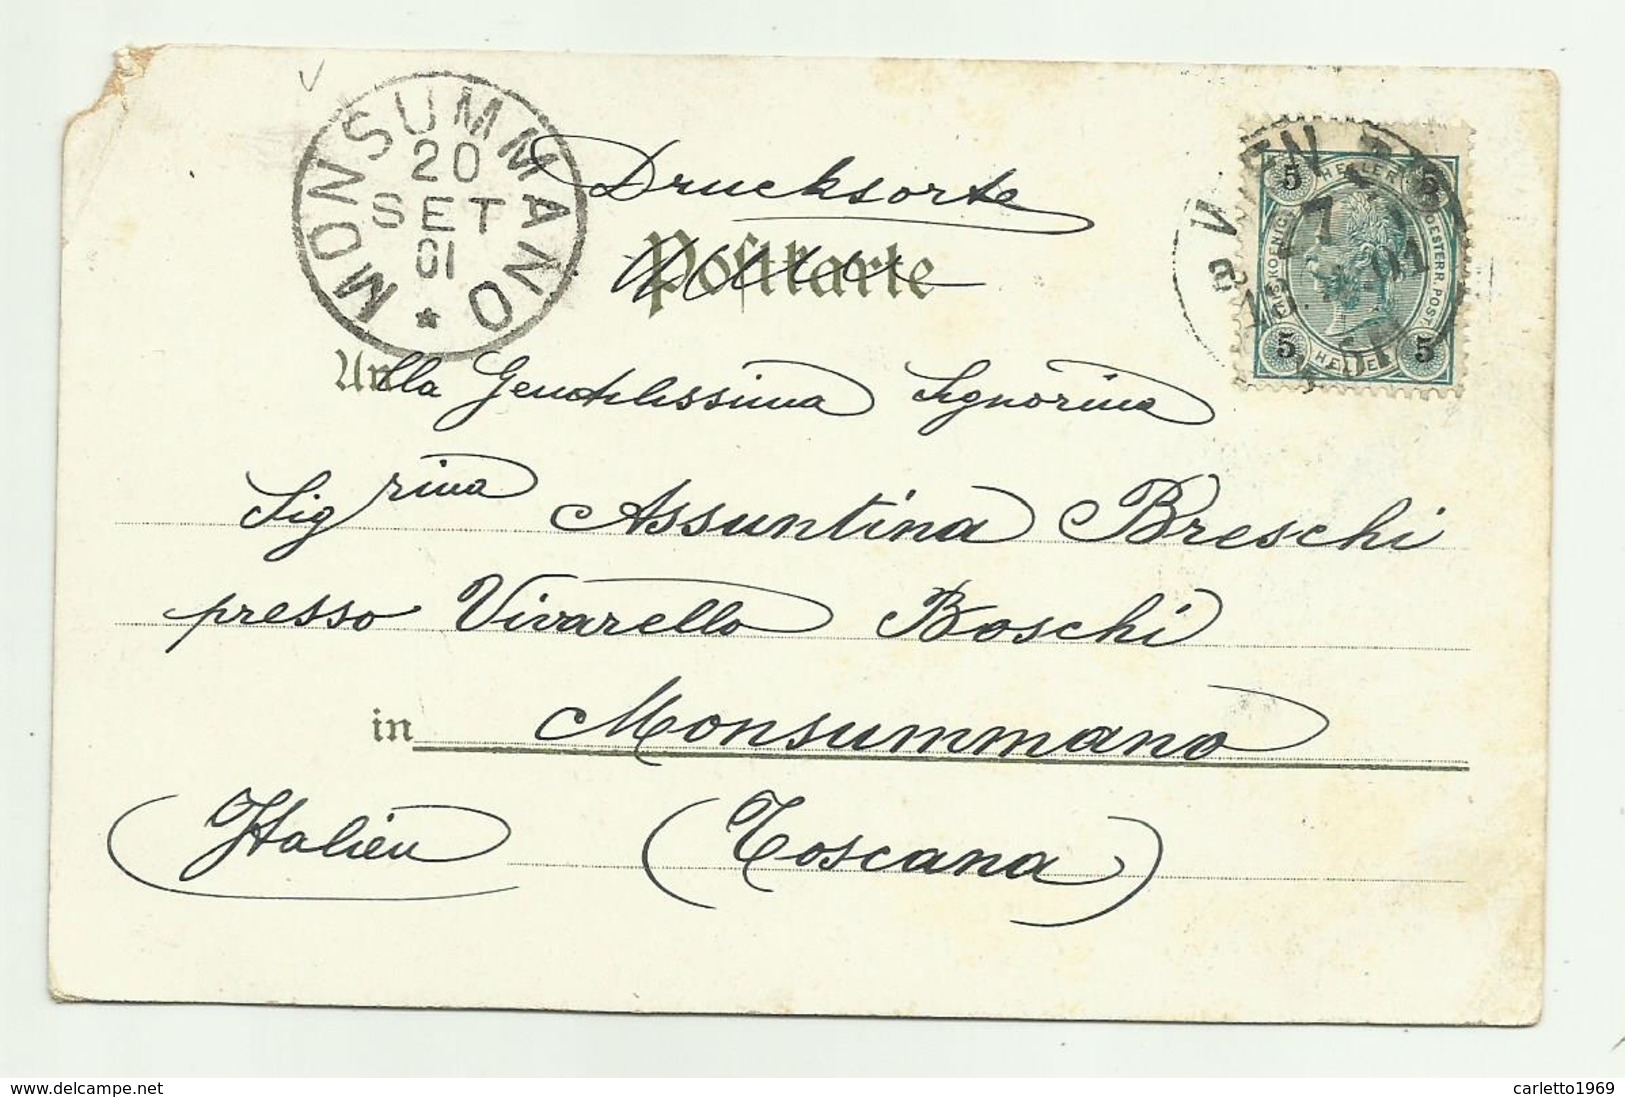 MONSUMMANO
20
SET
01
Drucksorte
Postkarte
An
alla Gentilissima Signorina
Sigrina Assuntina Breschi
presso Vivarello Boschi
in Monsummano
Italien (Toscana)
5 HELLER 5
KAIS. KOENIGL. OESTERR. POST
5 HELLER 5
WIEN
7
01
www.delcampe.net
carletto1969